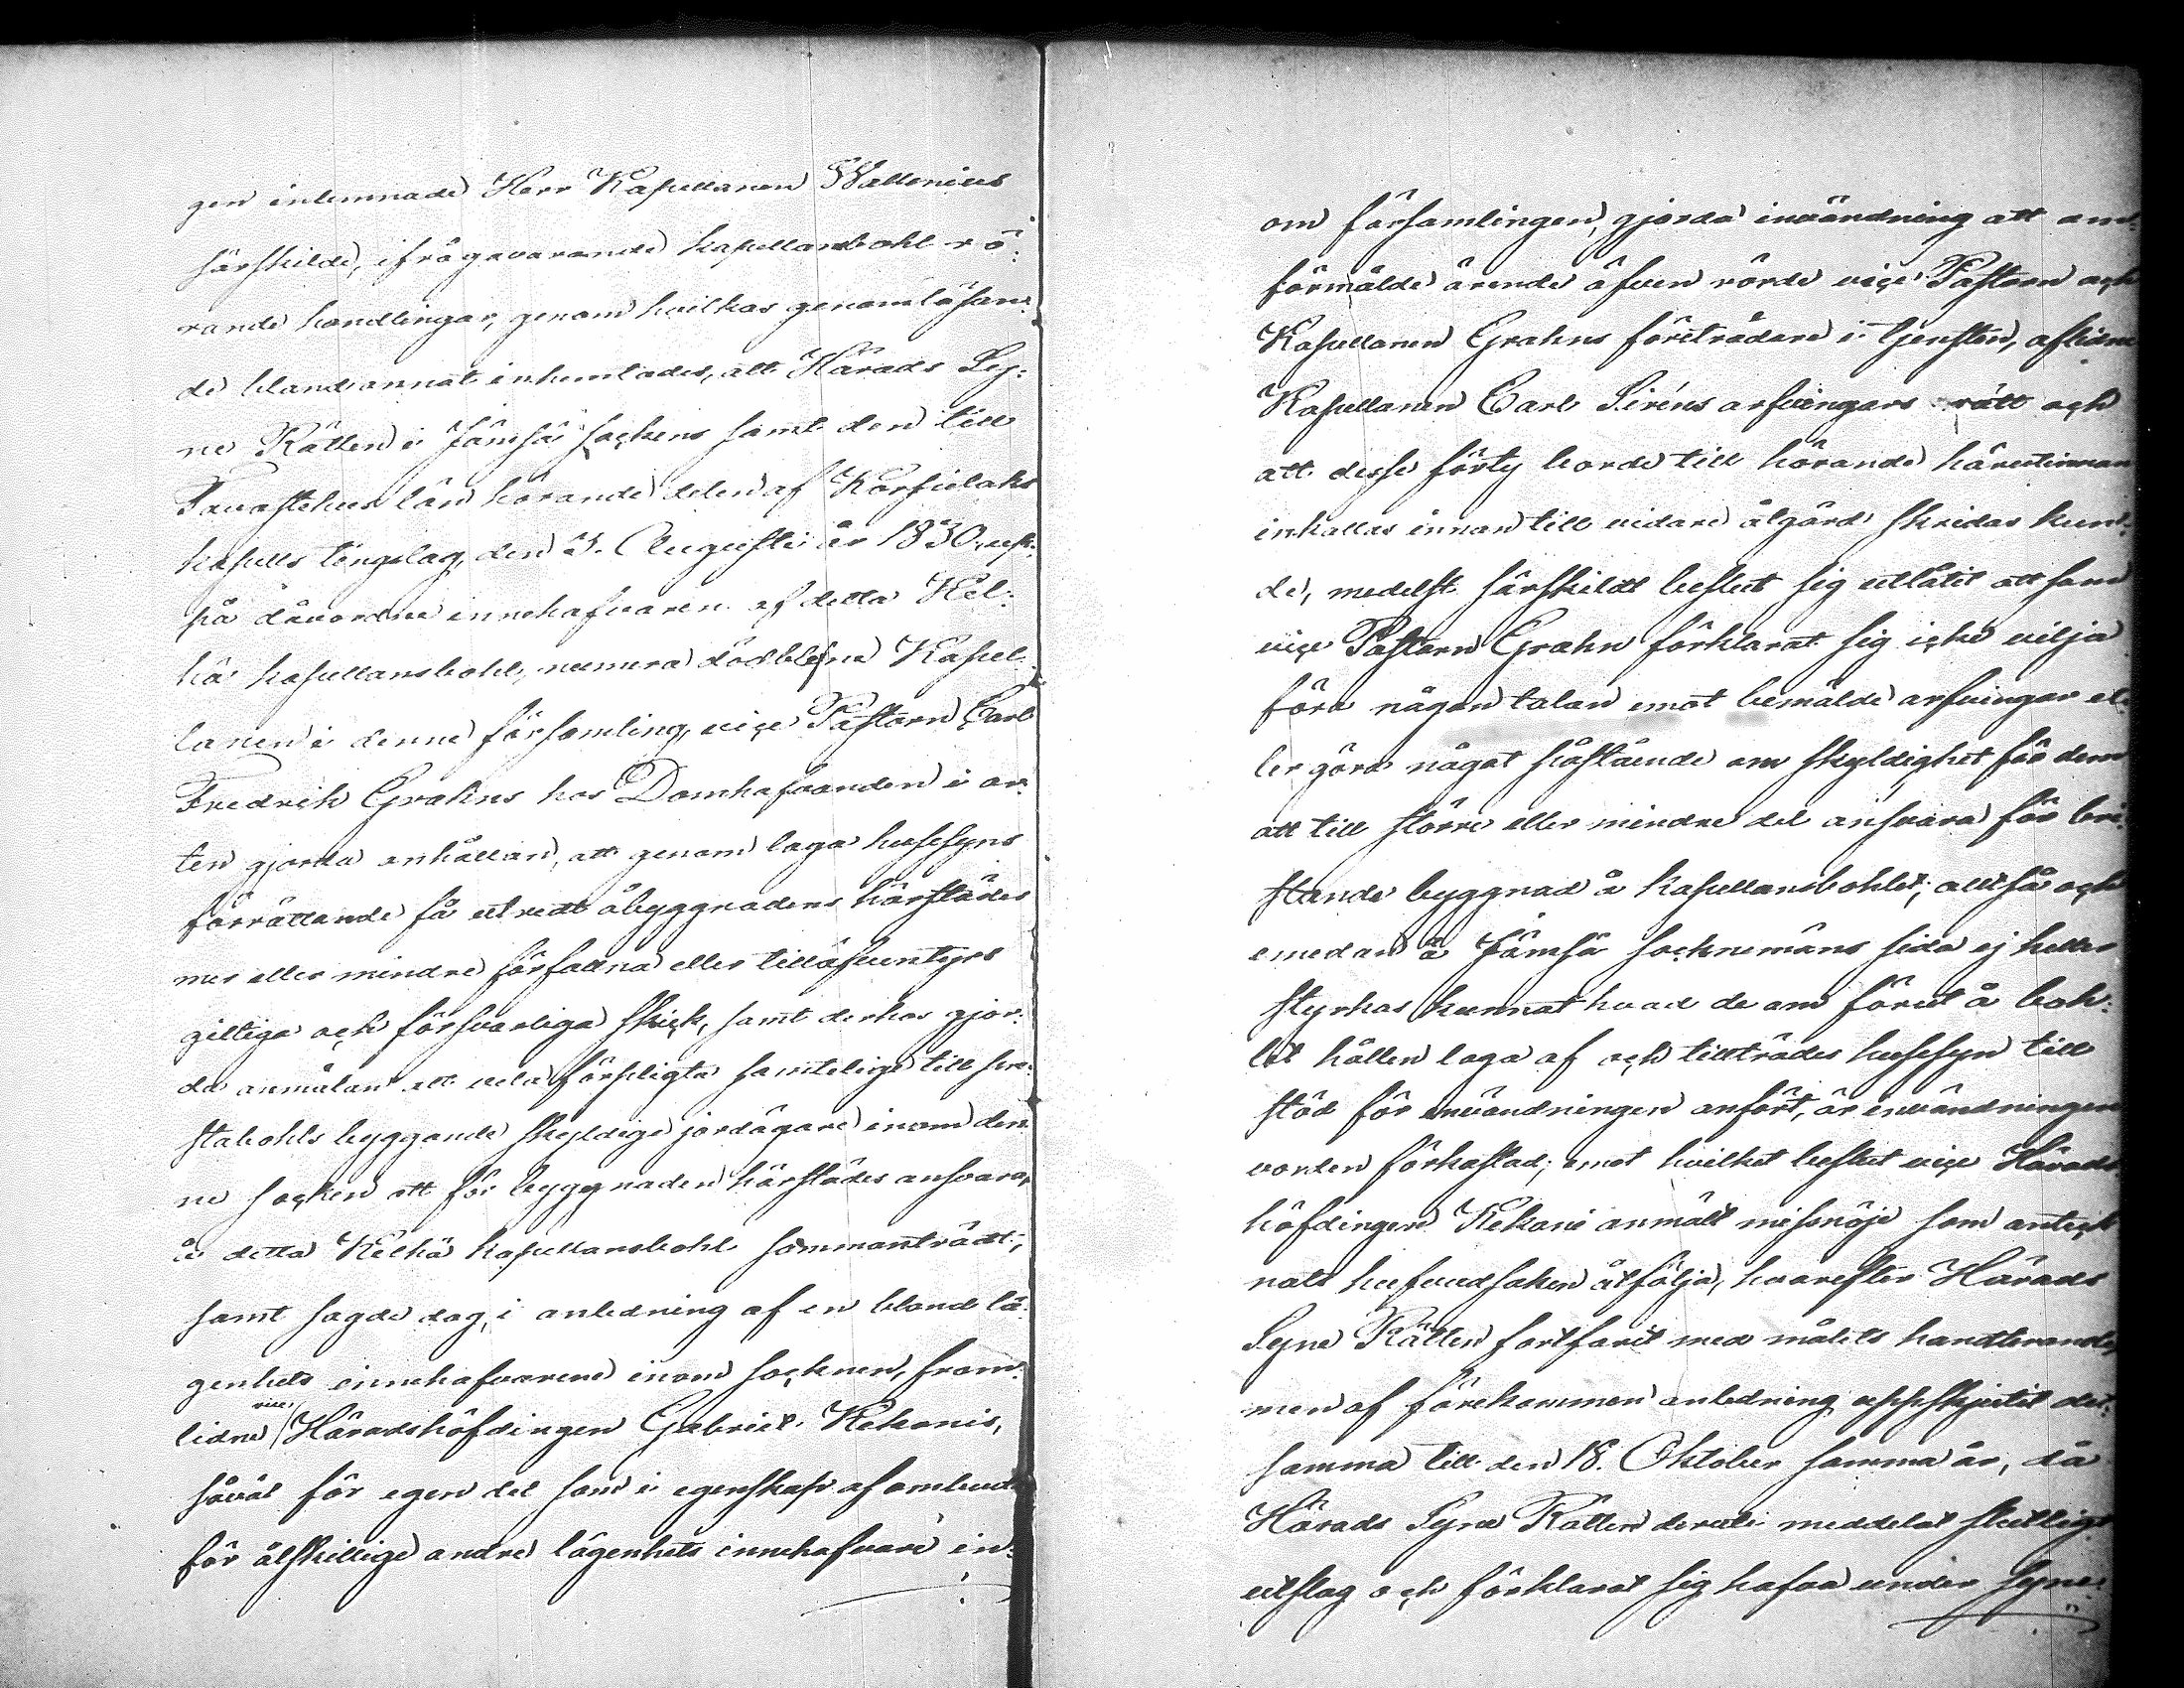 gen inlemnade Herr Kapellanen Wallenius
särskilde, ifrågavarande kapellansbohl rö:
rande handlingar, genom hvilkas genomläsan:
de bland annat inhemtades, att Härads Sy:
ne Rätten i Jämsä sockens samt den till
Tavastehus län hörande delen af Korpilaks
kapells tingslag, den 3. Augusti år 1830, upp:
på dåvordne innehafvaren af detta Kel:
hä kapellansbohl, numera dödblefne Kapel:
lanen i denne församling, vice Pastorn Carl
Fredrik Grahns hos Domhafvanden i or:
ten gjorda anhållan, att genom laga husesyns
förrättande få utredt åbyggnadens härstädes
mer eller mindre förfallna eller tilläfventyrs
giltiga och försvarliga skick, samt derhos gjor:
da anmälan att vela förpligta samtelige till pre:
stabohls byggande skyldige jordägare inom den:
ne socken att för byggnaden härstädes ansvara,
å detta Kelhä kapellansbohl sammanträdt;
samt sagde dag, i anledning af en bland lä:
genhets innehafvarene inom socknen, fram:
lidne vice Häradshöfdingen Gabriel Kekonis,
såväl för egen del som i egenskap af ombud
för åtskillige andre lägenhets innehafvare in:
om församlingen, gjorda invändning att om:
förmälde ärende äfven rörde vice Pastorn och
Kapellanen Grahns företrädare i tjensten, aflidne
Kapellanen Carl Siréns arfvingars rätt och
att desse förty borde till hörande häröfver
inkallas innan till vidare åtgärd skridas kun:
de, medelst särskildt beslut sig utlåtit att som
vice Pastorn Grahn förklarat sig icke vilja
föra någon talan emot bemälde arfvingar el:
ler göra något påstående om skyldighet för dem
att till större eller mindre del ansvara för bri:
stande byggnad å kapellansbohlet; alltså och
emedan å Jämsä socknemäns sida ej heller
styrkas kunnat hvad de om förut å boh:
let hållen laga af och tillträdes husesyn till
stöd för invändningen anfört, är invändningen
vorden förkastad; emot hvilket beslut vice Härads
höfdingen Kekoni anmält missnöje som anteck
nats hufvudsaken åtfölja, hvarefter Härads
Syne Rätten fortfarit med målets handterande,
men af förekommen anledning uppskjutit det:
samma till den 18. Oktober samma år, då
Härads Syne Rätten deruti meddelat slutligt
utslag och förklarat sig hafva under syne: